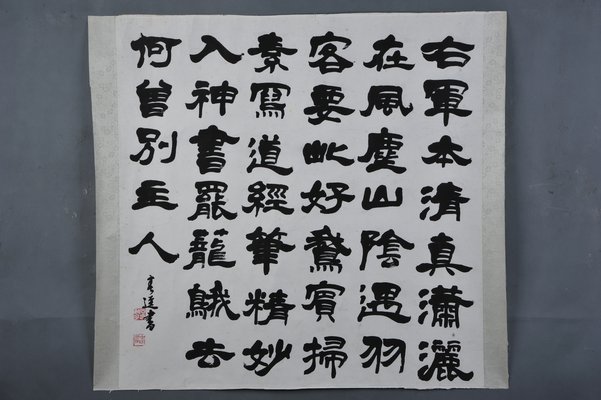 右軍本清真瀟灑
在風塵山陰遇羽
客要此好鵞賓掃
素寫道經筆精妙
入神書罷籠鵝去
何曾別主人
書